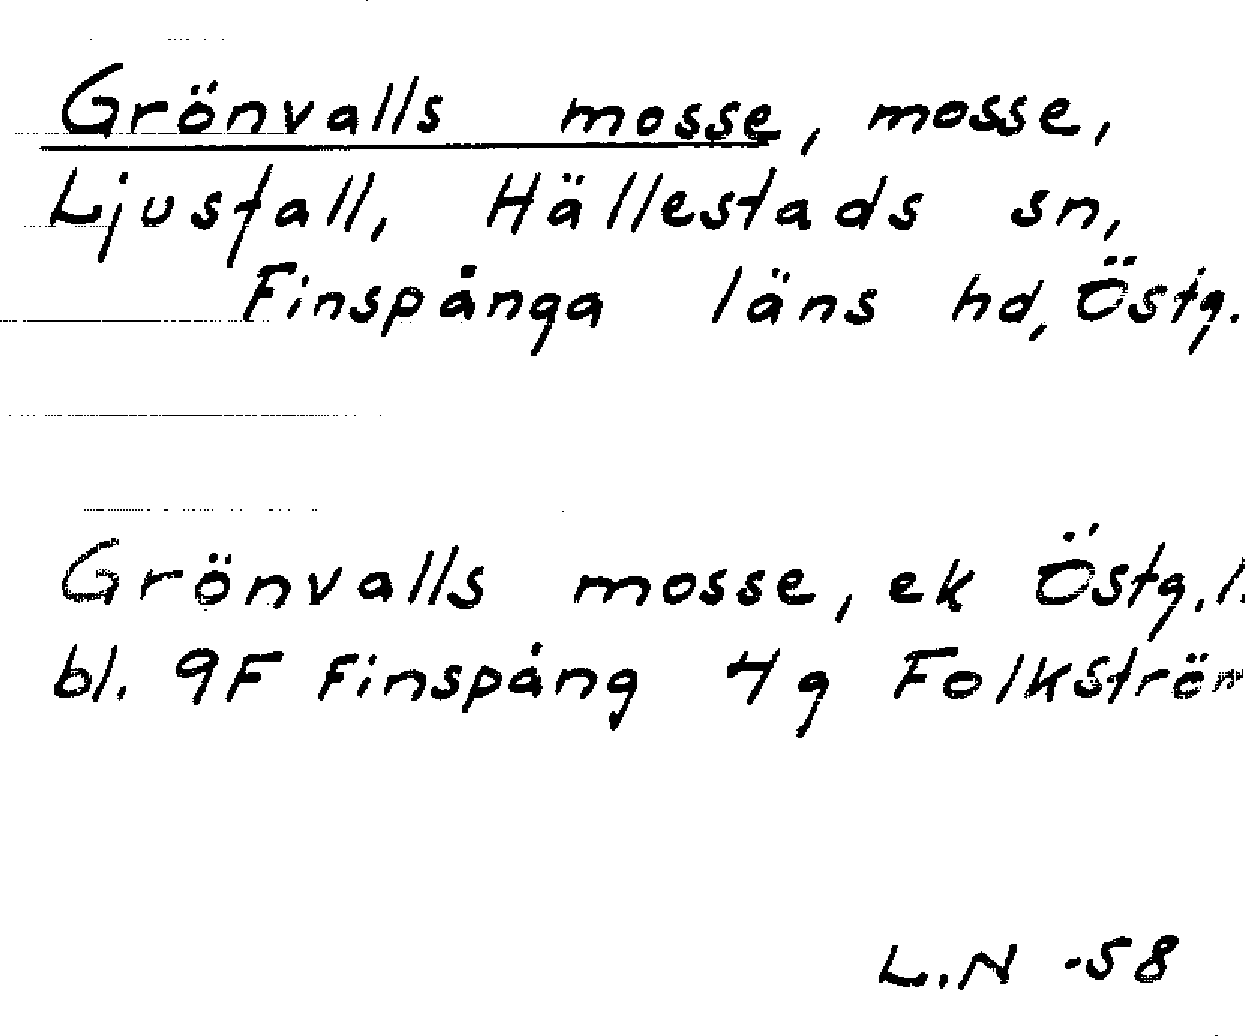 Grönvalls mosse, mosse,
Ljusfall, Hällestads sn,
Finspånga läns hd, Östg.
Grönvalls mosse, ek Östg. l.
bl. 9F Finspång 4g Folkström
L.N -58